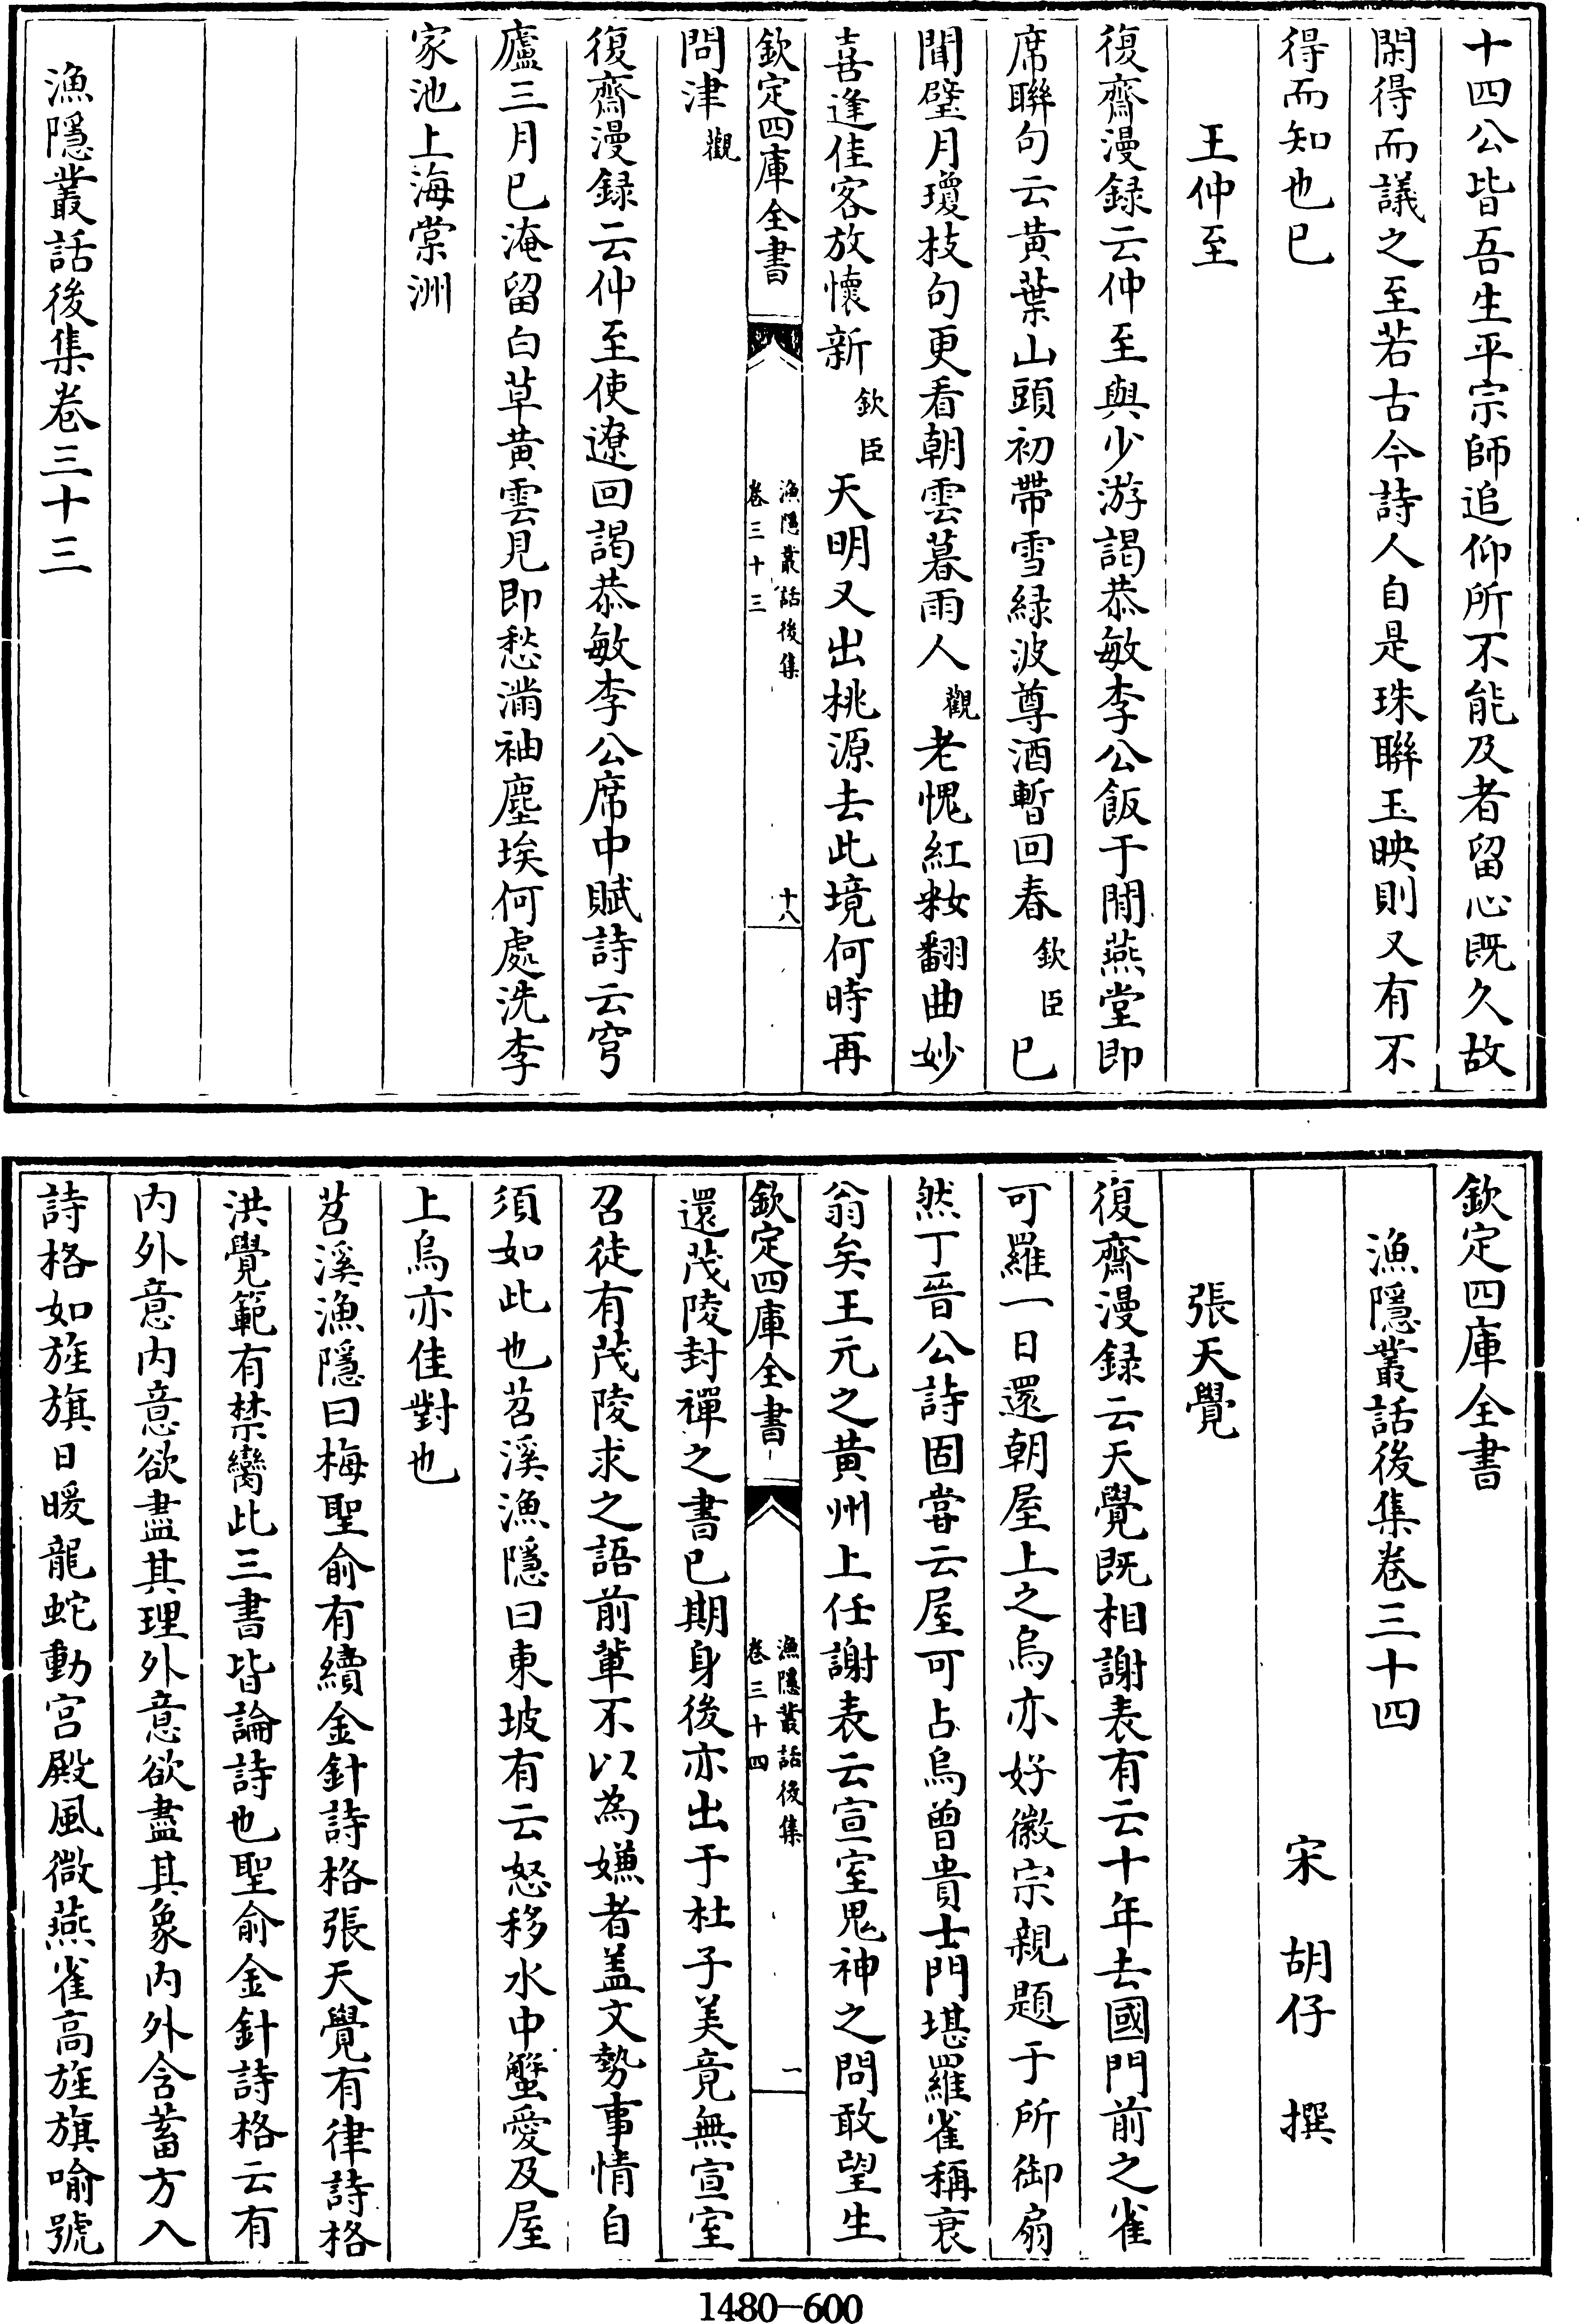 十四公皆吾生平宗師追仰所不能及者留心既久故
閑得而議之至若古今詩人自是珠聯玉映則又有不
得而知也已
王仲至
復齋漫録云仲至與少游謁恭敏李公飯于閒燕堂即
席聯句云黄葉山頭初帶雪緑波尊酒暫回春欽臣已
聞璧月瓊枝句更看朝雲暮雨人觀老愧紅粧翻曲妙
喜逢佳客放懷新欽臣天明又出桃源去此境何時再
欽定四庫全書
漁隱叢話後集
卷三十三
十八
問津觀
復齋漫録云仲至使遼回謁恭敏李公席中賦詩云穹
廬三月已淹留白草黄雲見即愁滿袖塵埃何處洗李
家池上海棠洲
漁隱叢話後集卷三十三
欽定四庫全書
漁隱叢話後集卷三十四
宋 胡仔 撰
張天覺
復齋漫録云天覺既相謝表有云十年去國門前之雀
可羅一日還朝屋上之烏亦好徽宗親題于所御扇
然丁晉公詩固嘗云屋可占烏曾貴士門堪羅雀稱衰
翁矣王元之黄州上任謝表云宣室鬼神之問敢望生
欽定四庫全書
漁隱叢話後集
卷三十四
一
還茂陵封禪之書已期身後亦出于杜子美竟無宣室
召徒有茂陵求之語前輩不以為嫌者盖文勢事情自
須如此也苕溪漁隱曰東坡有云怒移水中蟹愛及屋
上烏亦佳對也
苕溪漁隱曰梅聖俞有續金針詩格張天覺有律詩格
洪覺範有禁臠此三書皆論詩也聖俞金針詩格云有
内外意内意欲盡其理外意欲盡其象内外含蓄方入
詩格如旌旗日暖龍蛇動宫殿風微燕雀高旌旗喻號
1480-600